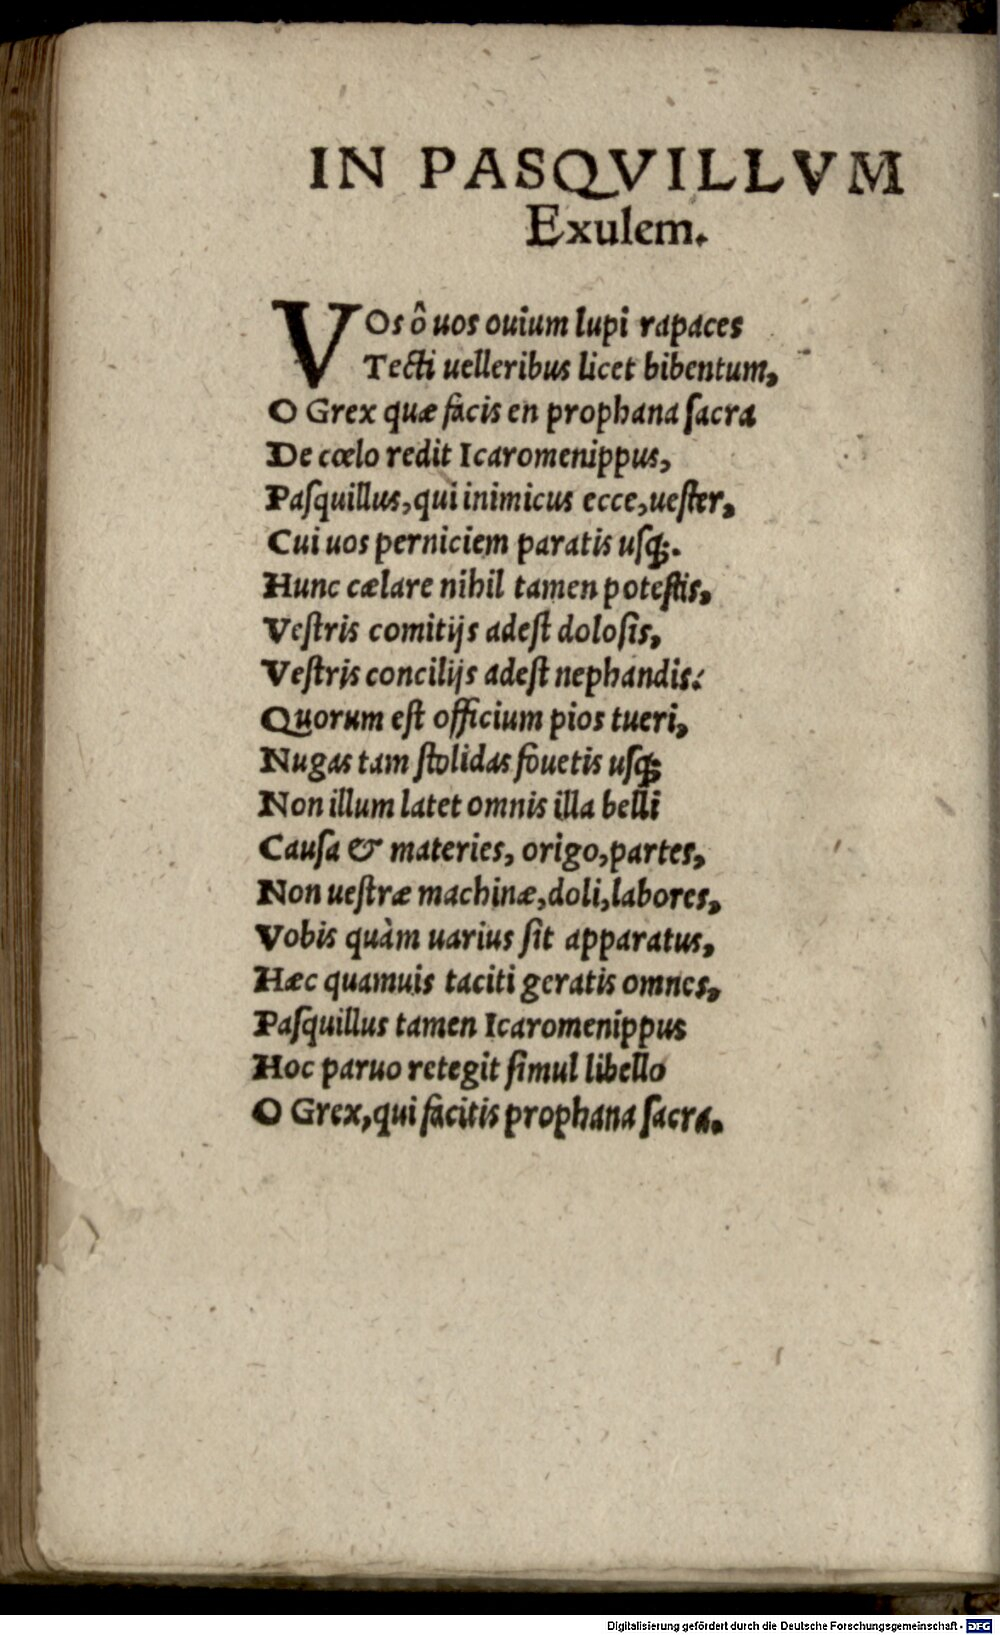 IN PASQVILLVM
Exulem.
VOs ô uos ouium lupi rapaces
Tecti uelleribus licet bibentum,
O Grex quæ facis en prophana ſacra
De cœlo redit Icaromenippus,
Paſquillus, qui inimicus ecce, ueſter,
Cui uos perniciem paratis uſq;.
Hunc cælare nihil tamen poteſtis,
Veſtris comitijs adeſt doloſis,
Veſtris concilijs adeſt nephandis:
Quorum eſt officium pios tueri,
Nugas tam ſtolidas fouetis uſq;
Non illum latet omnis illa belli
Cauſa & materies, origo, partes,
Non ueſtræ machinæ, doli, labores,
Vobis quàm uarius ſit apparatus,
Hæc quamuis taciti geratis omnes,
Paſquillus tamen Icaromenippus
Hoc paruo retegit ſimul libello
O Grex, qui facitis prophana ſacra.
Digitalisierung gefördert durch die Deutsche Forschungsgemeinschaft - DFG